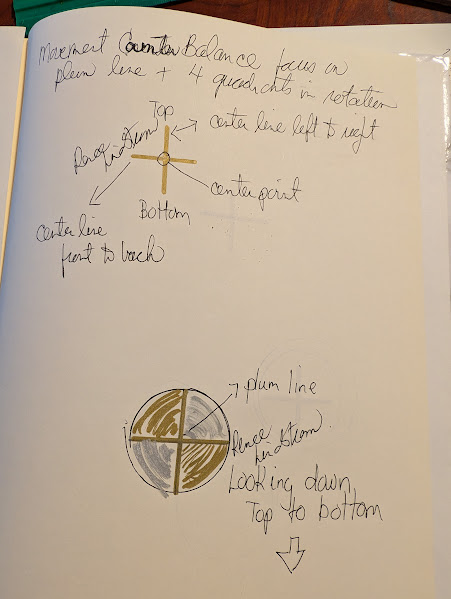 Movement Counter Balance focus in
plum line + 4 quadrants in rotation
Top
center line left to right
Renee
Lindstrom
centerpoint
Bottom
center line
front to back
plum line
Renee
Lindstrom
Looking down
Top to bottom